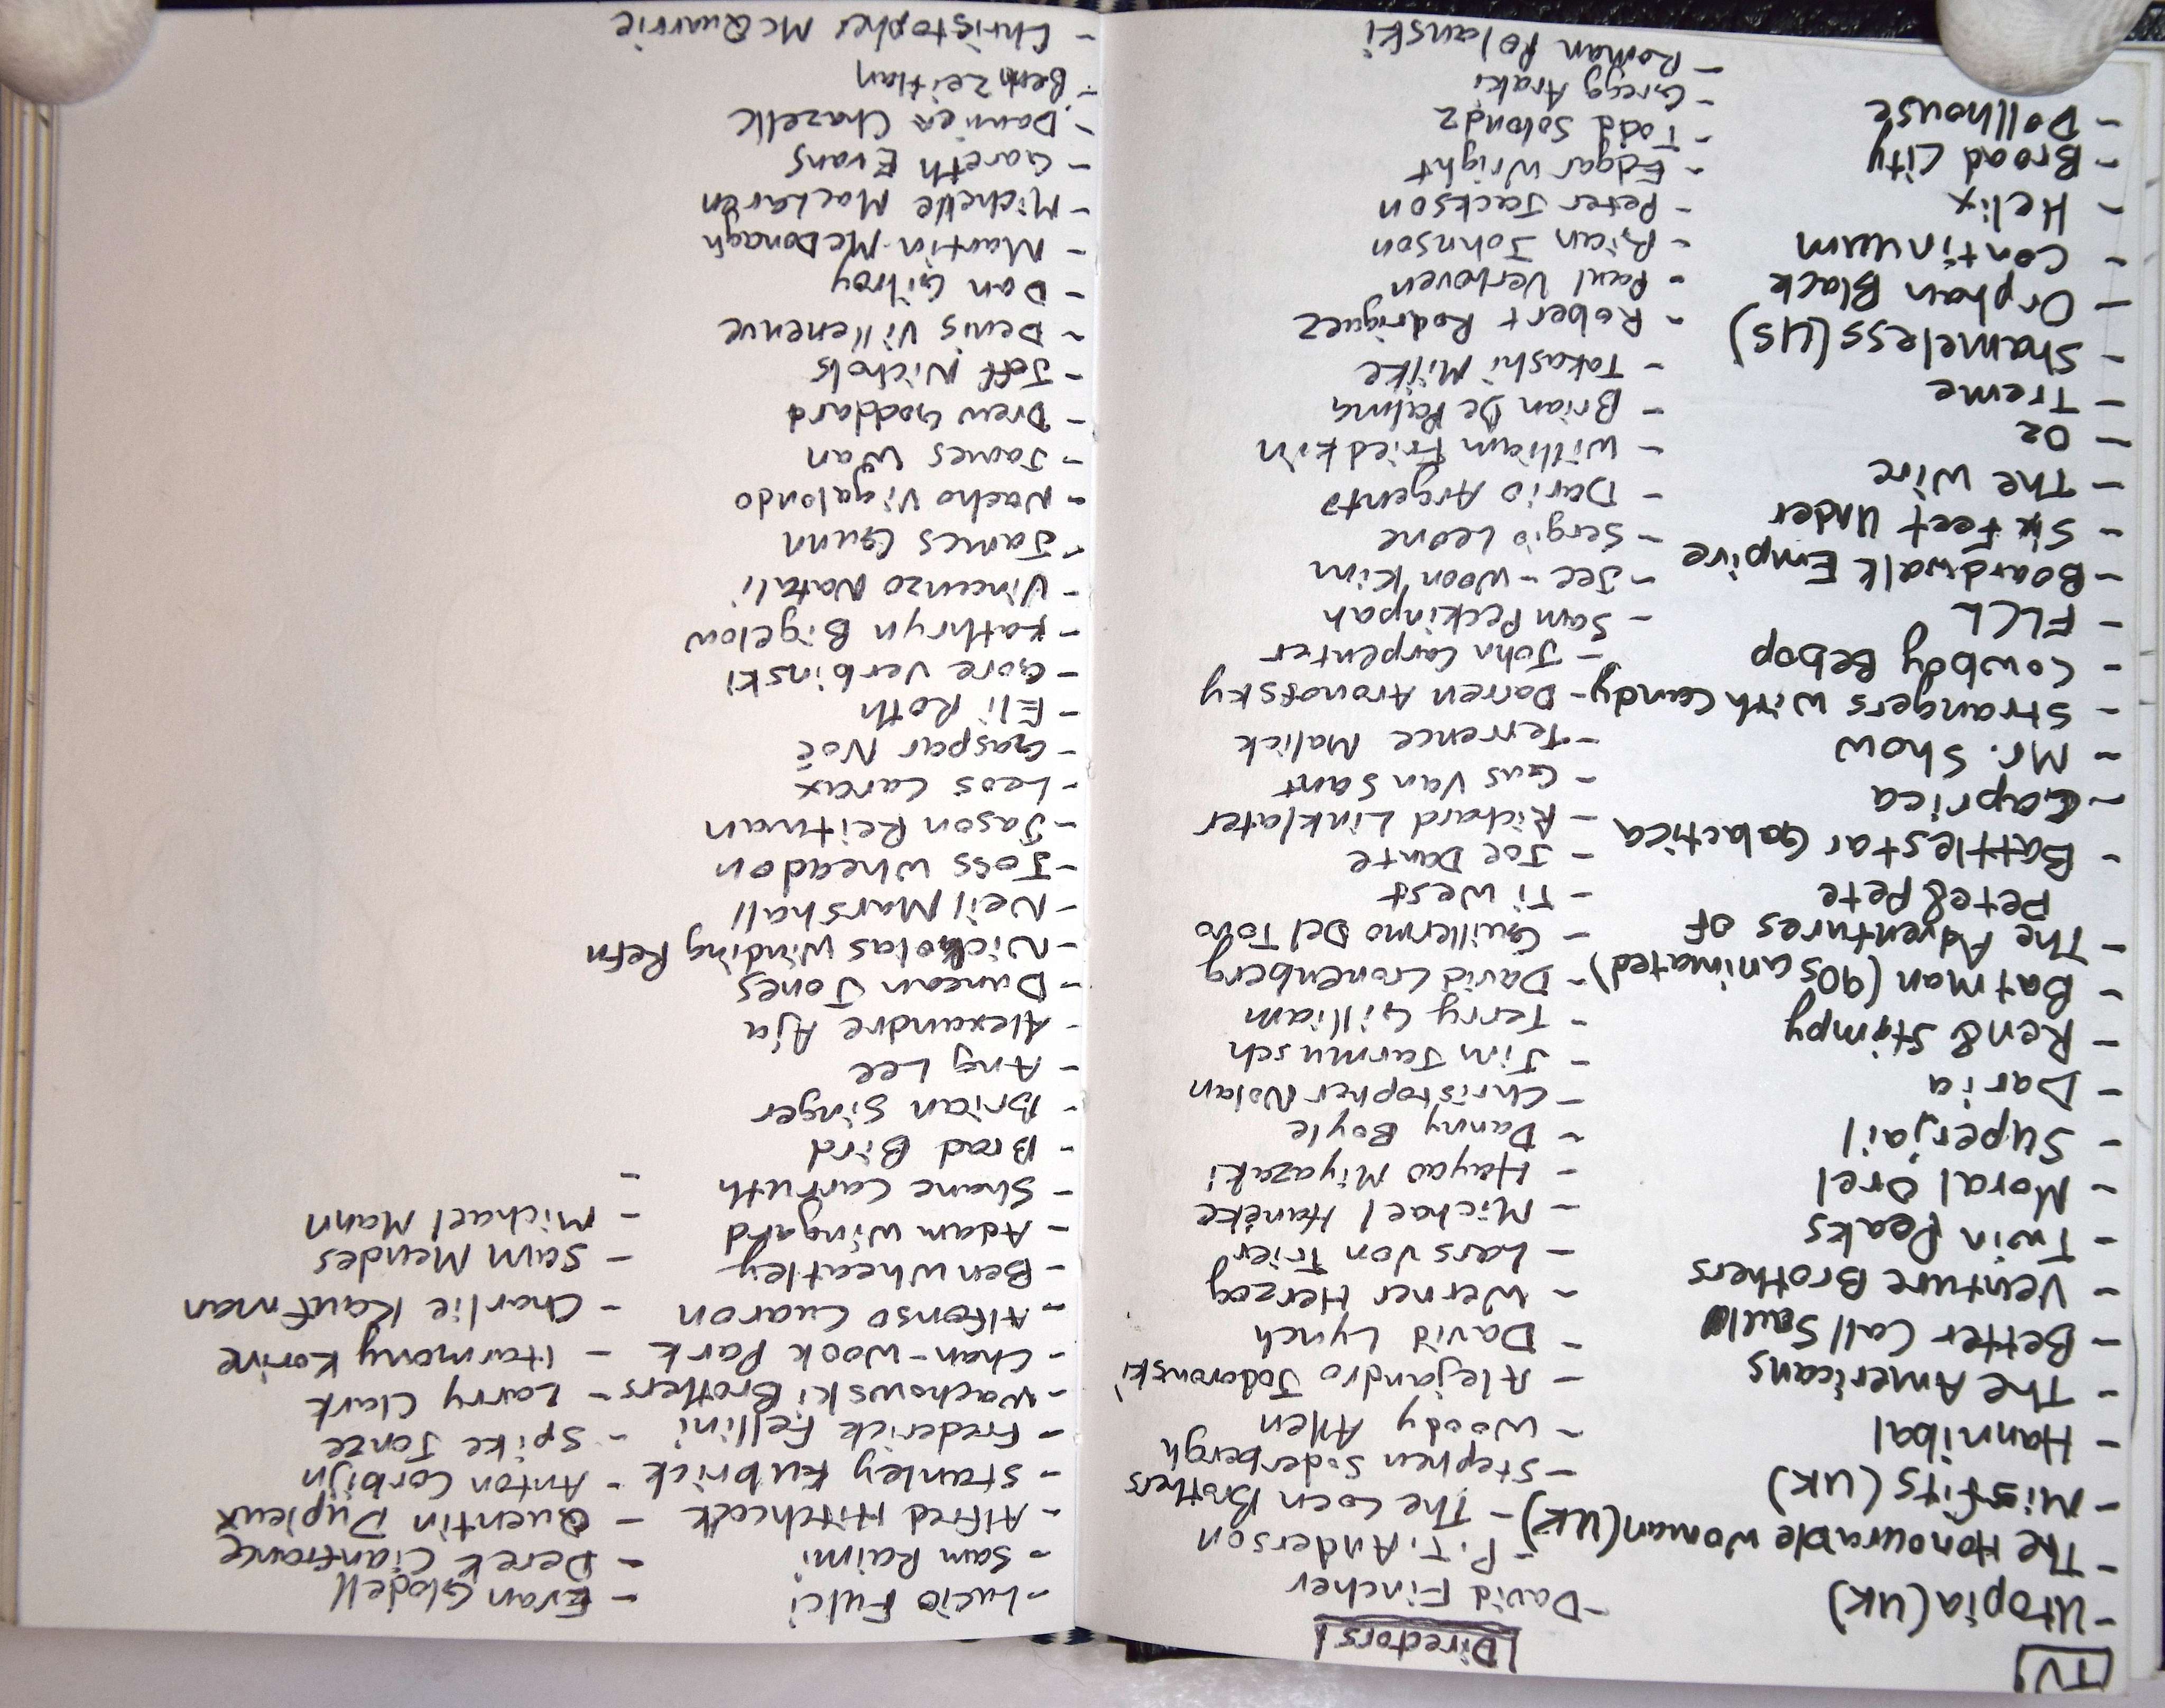 TV
- Utopia (UK)
- The Honourable Woman (UK)
- Misfits (UK)
- Hannibal
- The Americans
- Better Call Saul
- Venture Brothers
- Twin Peaks
- Moral Orel
- Superjail
- Daria
- Ren & Stimpy
- Batman (90s animated)
- The Adventures of
Pete & Pete
- Battlestar Galactica
- Caprica
- Mr. Show
- Strangers with Candy
- Cowboy Bebop
- FLCL
- Boardwalk Empire
- Six Feet Under
- The Wire
- Oz
- Treme
- Shameless (US)
- Orphan Black
- Continuum
- Helix
- Broad City
- Dollhouse
Directors
- David Fincher
- P.T. Anderson
- The Coen Brothers
- Stephen Soderbergh
- Woody Allen
- Alejandro Jodorowski
- David Lynch
- Werner Herzog
- Lars Von Trier
- Michael Haneke
- Hayao Miyazaki
- Danny Boyle
- Christopher Nolan
- Jim Jarmusch
- Terry Gilliam
- David Cronenberg
- Guillermo Del Toro
- Ti West
- Joe Dante
- Richard Linklater
- Gus Van Sant
- Terrence Malick
- Darren Aronofsky
- John Carpenter
- Sam Peckinpah
- Jee-Woon Kim
- Sergio Leone
- Dario Argento
- William Friedkin
- Brian De Palma
- Takashi Miike
- Robert Rodriguez
- Paul Verhoven
- Rian Johnson
- Peter Jackson
- Edgar Wright
- Todd Solondz
- Gregg Araki
- Roman Polanski
- Lucio Fulci
- Sam Raimi
- Alfred Hitchcock
- Stanley Kubrick
- Frederick Fellini
- Wachowski Brothers
- Chan-Wook Park
- Alfonso Cuaron
- Ben Wheatley
- Adam Wingard
- Shane Carruth
- Brad Bird
- Brian Singer
- Ang Lee
- Alexandre Aja
- Duncan Jones
- Nickolas Winding Refn
- Neil Marshall
- Joss Wheadon
- Jason Reitman
- Leos Carax
- Gaspar Noé
- Eli Roth
- Gore Verbinski
- Kathryn Bigelow
- Vincenzo Natali
- James Gunn
- Nacho Vigalondo
- James Wan
- Drew Goddard
- Jeff Nichols
- Denis Villeneuve
- Dan Gilroy
- Martin McDonagh
- Michelle MacLaren
- Gareth Evans
- Damien Chazelle
- Benh Zeitlan
- Christopher McQuarrie
- Evan Glodell
- Derek Cianfrance
- Quentin Dupieux
- Anton Corbijn
- Spike Jonze
- Larry Clark
- Harmony Korine
- Charlie Kaufman
- Sam Mendes
- Michael Mann
-